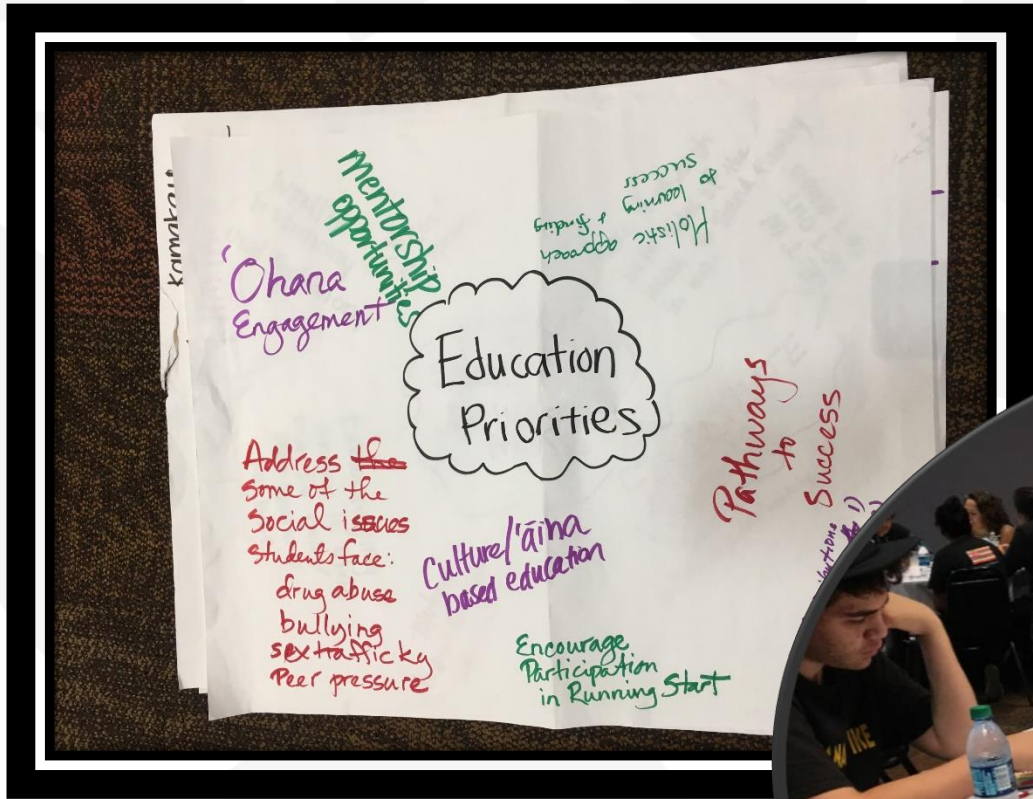 Kamakau
mentorship
opportunities
Holistic approach
to learning + finding
success
'Ohana
Engagement
Education
Priorities
Pathways
to
Success
Address the
some of the
social issues
students face:
drug abuse
bullying
sex trafficky
Peer pressure
Culture/'āina
based education
Encourage
Participation
in Running Start
IKE